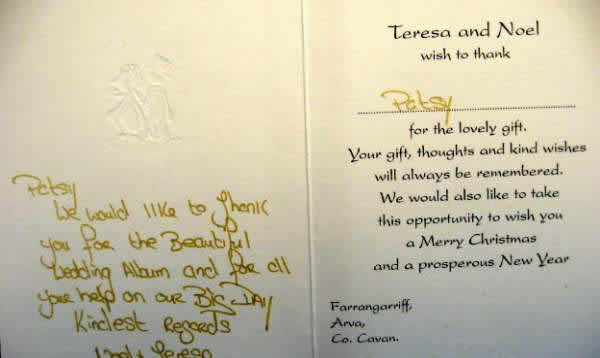 Patsy
We would like to Thank
you for the Beautiful
Wedding Album and for all
your help on our BIG DAY
Kindest Regards
Noel & Teresa
Teresa and Noel
wish to thank
Patsy
for the lovely gift.
Your gift, thoughts and kind wishes
will always be remembered.
We would also like to take
this opportunity to wish you
a Merry Christmas
and a prosperous New Year
Farrangarriff,
Arva,
Co. Cavan.